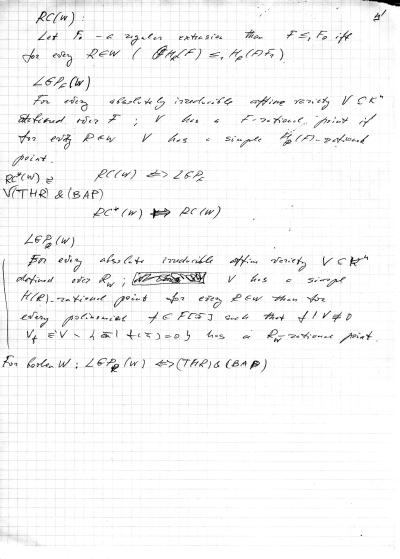 RC(W):
Let F₀ - a regular extension then F ≤₁ F₀ iff
for every R∈W ( H_R(F) ≤₁ H_R(F)F₀ ).
LGP_F(W)
For every absolutely irreducible affine variety V ⊂ Kⁿ
defined over F; V has a F-rational point if
for every R∈W V has a simple H_R(F)-rational
point.
RC*(W) ⇌ RC(W) ⇔ LGP_F
∀(THR) & (BAP)
RC*(W) ⇔ RC(W)
LGP_R(W)
For every absolute irreducible affine variety V ⊂ Kⁿ
defined over R_W; V has a simple
H(R)-rational point for every R∈W then for
every polinomial f ∈ F[x̄] such that f|V ≠ 0
V_f = V \ {ā | f(ā)=0} has a R_W-rational point.
For boolean W: LGP_R(W) ⇔ (THR) & (BAP)